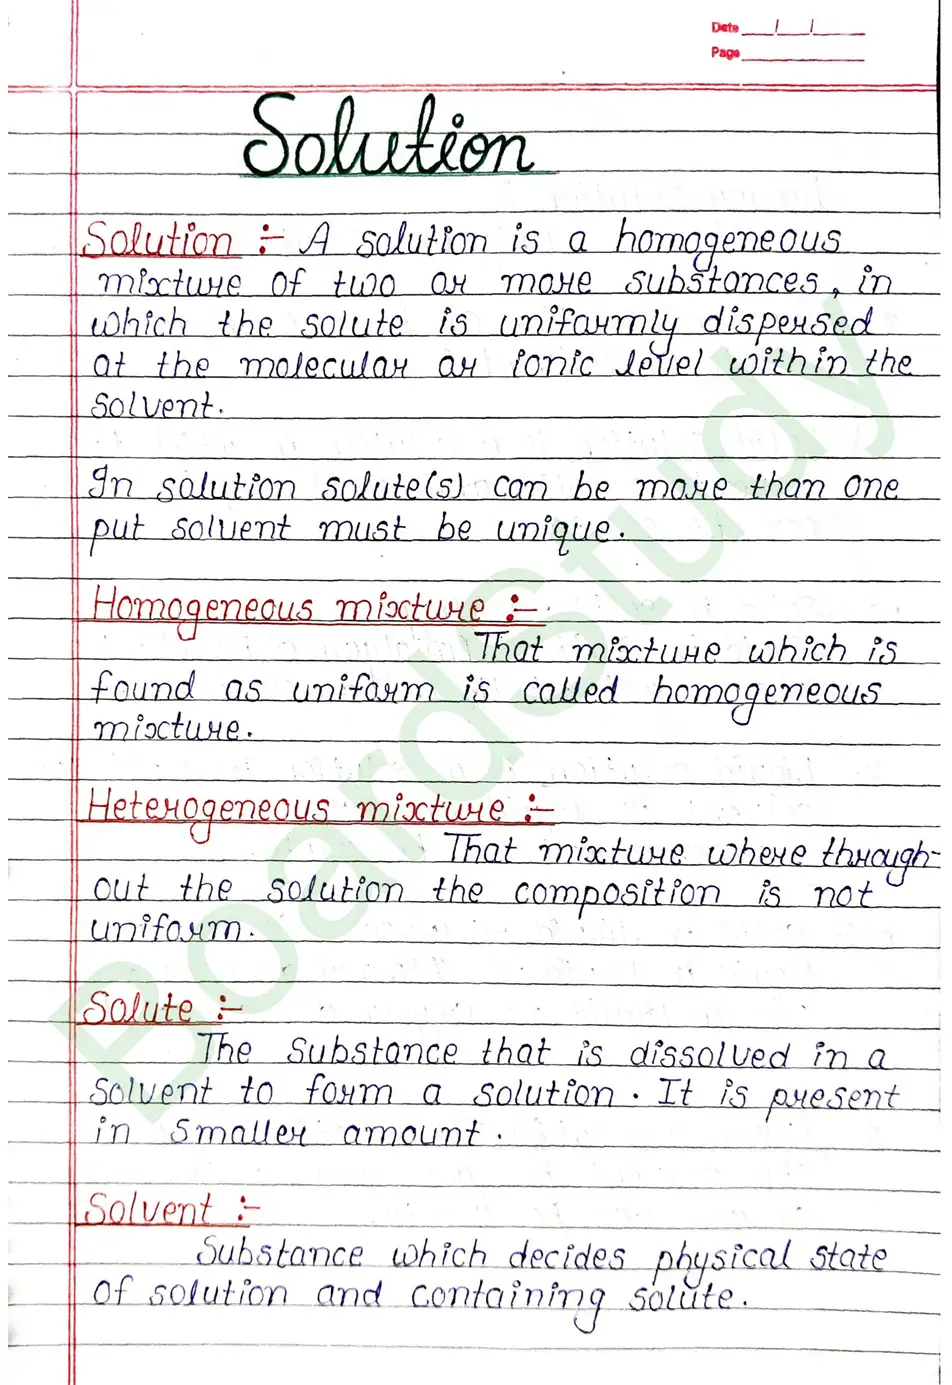 Date __/__/__
Page
Solution
Solution :- A solution is a homogeneous
mixture of two or more substances, in
which the solute is uniformly dispersed
at the molecular or ionic level within the
solvent.
In solution solute(s) can be more than one
put solvent must be unique.
Homogeneous mixture :-
That mixture which is
found as uniform is called homogeneous
mixture.
Heterogeneous mixture :-
That mixture where through-
out the solution the composition is not
uniform.
Solute :-
The substance that is dissolved in a
solvent to form a solution. It is present
in smaller amount.
Solvent :-
Substance which decides physical state
of solution and containing solute.
BoardStudy